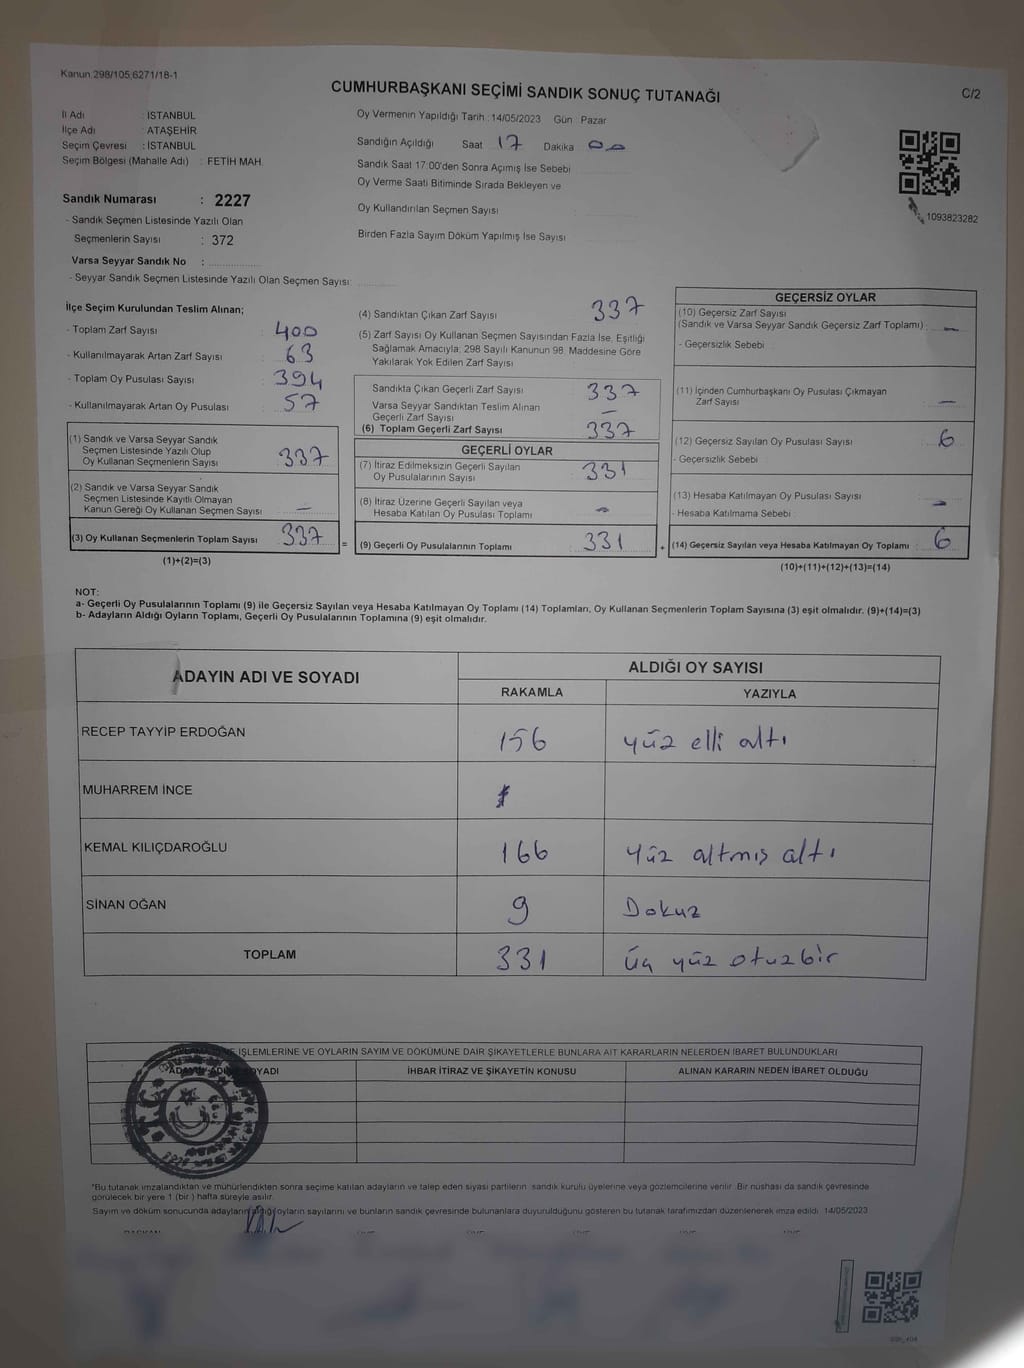 Kanun 298/105;6271/18-1
CUMHURBAŞKANI SEÇİMİ SANDIK SONUÇ TUTANAĞI
C/2
İl Adı : İSTANBUL
İlçe Adı : ATAŞEHİR
Seçim Çevresi : İSTANBUL
Seçim Bölgesi (Mahalle Adı) : FETİH MAH.
Sandık Numarası : 2227
- Sandık Seçmen Listesinde Yazılı Olan
Seçmenlerin Sayısı : 372
Varsa Seyyar Sandık No :
- Seyyar Sandık Seçmen Listesinde Yazılı Olan Seçmen Sayısı:
Oy Vermenin Yapıldığı Tarih :14/05/2023 Gün Pazar
Sandığın Açıldığı Saat 17 Dakika 00
Sandık Saat 17:00'den Sonra Açımış İse Sebebi
Oy Verme Saati Bitiminde Sırada Bekleyen ve
Oy Kullandırılan Seçmen Sayısı
Birden Fazla Sayım Döküm Yapılmış İse Sayısı
1093823282
İlçe Seçim Kurulundan Teslim Alınan;
- Toplam Zarf Sayısı : 400
- Kullanılmayarak Artan Zarf Sayısı : 63
- Toplam Oy Pusulası Sayısı : 394
- Kullanılmayarak Artan Oy Pusulası : 57
(1) Sandık ve Varsa Seyyar Sandık
Seçmen Listesinde Yazılı Olup
Oy Kullanan Seçmenlerin Sayısı : 337
(2) Sandık ve Varsa Seyyar Sandık
Seçmen Listesinde Kayıtlı Olmayan
Kanun Gereği Oy Kullanan Seçmen Sayısı : -
(3) Oy Kullanan Seçmenlerin Toplam Sayısı : 337
(1)+(2)=(3)
=
(4) Sandıktan Çıkan Zarf Sayısı 337
(5) Zarf Sayısı Oy Kullanan Seçmen Sayısından Fazla İse, Eşitliği
Sağlamak Amacıyla; 298 Sayılı Kanunun 98. Maddesine Göre
Yakılarak Yok Edilen Zarf Sayısı
Sandıkta Çıkan Geçerli Zarf Sayısı 337
Varsa Seyyar Sandıktan Teslim Alınan
Geçerli Zarf Sayısı -
(6) Toplam Geçerli Zarf Sayısı 337
GEÇERLİ OYLAR
(7) İtiraz Edilmeksizin Geçerli Sayılan
Oy Pusulalarının Sayısı : 331
(8) İtiraz Üzerine Geçerli Sayılan veya
Hesaba Katılan Oy Pusulası Toplamı : -
(9) Geçerli Oy Pusulalarının Toplamı : 331
+
GEÇERSİZ OYLAR
(10) Geçersiz Zarf Sayısı
(Sandık ve Varsa Seyyar Sandık Geçersiz Zarf Toplamı) : -
- Geçersizlik Sebebi
(11) İçinden Cumhurbaşkanı Oy Pusulası Çıkmayan
Zarf Sayısı -
(12) Geçersiz Sayılan Oy Pusulası Sayısı : 6
- Geçersizlik Sebebi
(13) Hesaba Katılmayan Oy Pusulası Sayısı : -
- Hesaba Katılmama Sebebi
(14) Geçersiz Sayılan veya Hesaba Katılmayan Oy Toplamı : 6
(10)+(11)+(12)+(13)=(14)
NOT:
a- Geçerli Oy Pusulalarının Toplamı (9) ile Geçersiz Sayılan veya Hesaba Katılmayan Oy Toplamı (14) Toplamları, Oy Kullanan Seçmenlerin Toplam Sayısına (3) eşit olmalıdır. (9)+(14)=(3)
b- Adayların Aldığı Oyların Toplamı, Geçerli Oy Pusulalarının Toplamına (9) eşit olmalıdır.
ADAYIN ADI VE SOYADI
ALDIĞI OY SAYISI
RAKAMLA YAZIYLA
RECEP TAYYİP ERDOĞAN 156 yüz elli altı
MUHARREM İNCE
KEMAL KILIÇDAROĞLU 166 yüz altmış altı
SİNAN OĞAN 9 Dokuz
TOPLAM 331 üç yüz otuzbir
İŞLEMLERİNE VE OYLARIN SAYIM VE DÖKÜMÜNE DAİR ŞİKAYETLERLE BUNLARA AİT KARARLARIN NELERDEN İBARET BULUNDUKLARI
ADAYIN ADI SOYADI İHBAR İTİRAZ VE ŞİKAYETİN KONUSU ALINAN KARARIN NEDEN İBARET OLDUĞU
T.C.
*Bu tutanak imzalandıktan ve mühürlendikten sonra seçime katılan adayların ve talep eden siyasi partilerin sandık kurulu üyelerine veya gözlemcilerine verilir. Bir nüshası da sandık çevresinde
görülecek bir yere 1 (bir ) hafta süreyle asılır.
Sayım ve döküm sonucunda adayların aldığı oyların sayılarını ve bunların sandık çevresinde bulunanlara duyurulduğunu gösteren bu tutanak tarafımızdan düzenlenerek imza edildi. 14/05/2023